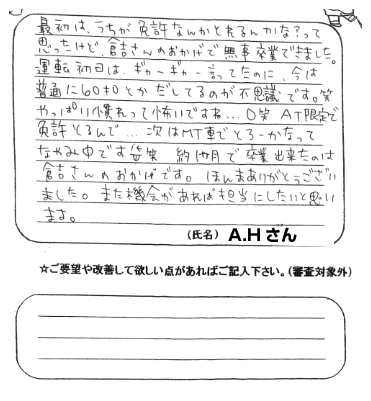 最初は、うちが免許なんかとれるんかな?って
思ったけど、倉吉さんのおかげで無事卒業できました。
運転初日は、ギャーギャー言ってたのに、今は
普通に60キロとかだしてるのが不思議です。笑
やっぱり慣れって怖いですね…〇笑 AT限定で
免許とるんで…次はMT車でとろーかなって
なやみ中です 笑 約 月で卒業出来たのは
倉吉さんのおかげです。ほんまありがとうござい
ました。また機会があれば担当にしたいと思い
ます。
(氏名) A.Hさん
☆ご要望や改善して欲しい点があればご記入下さい。(審査対象外)